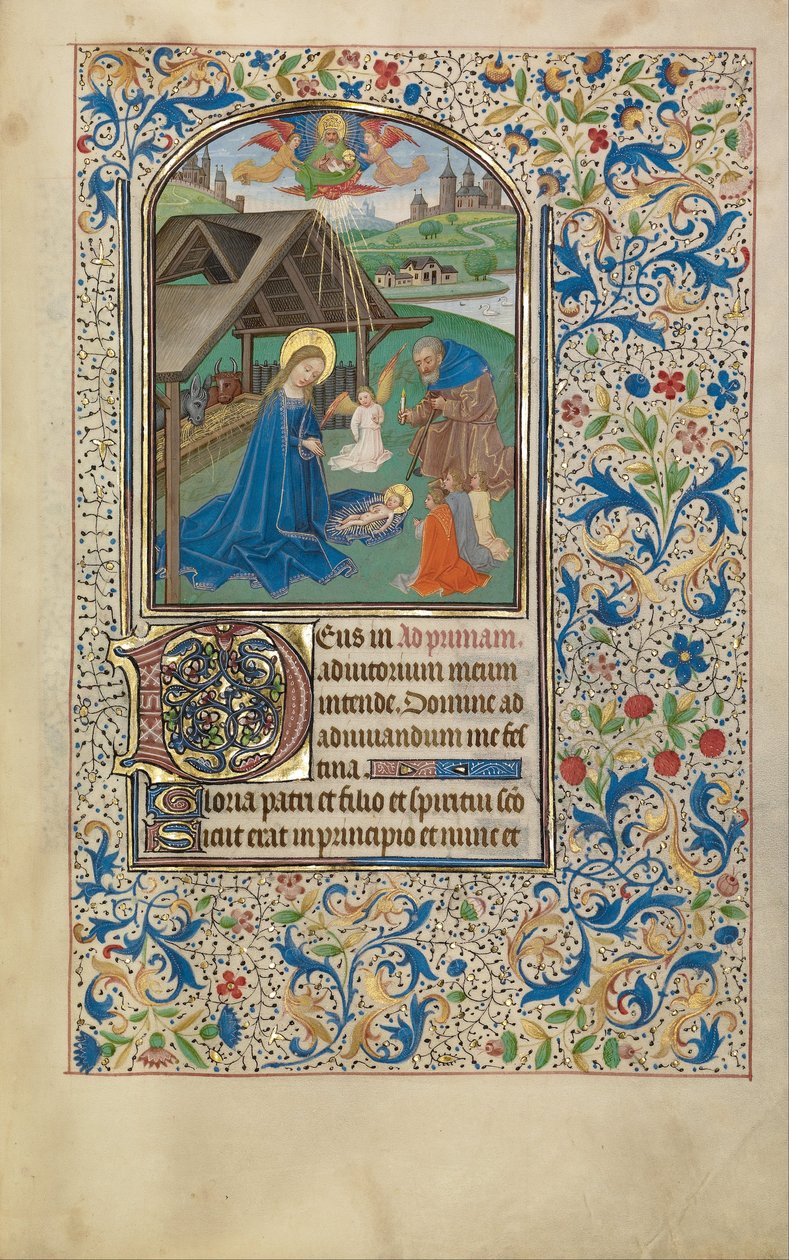 Eus in Ad primam.
adiutorium meum
intende. Domine ad
adiuuandum me fes
tina.
Gloria patri et filio et spiritui sc̄o
Sicut erat in principio et nunc et